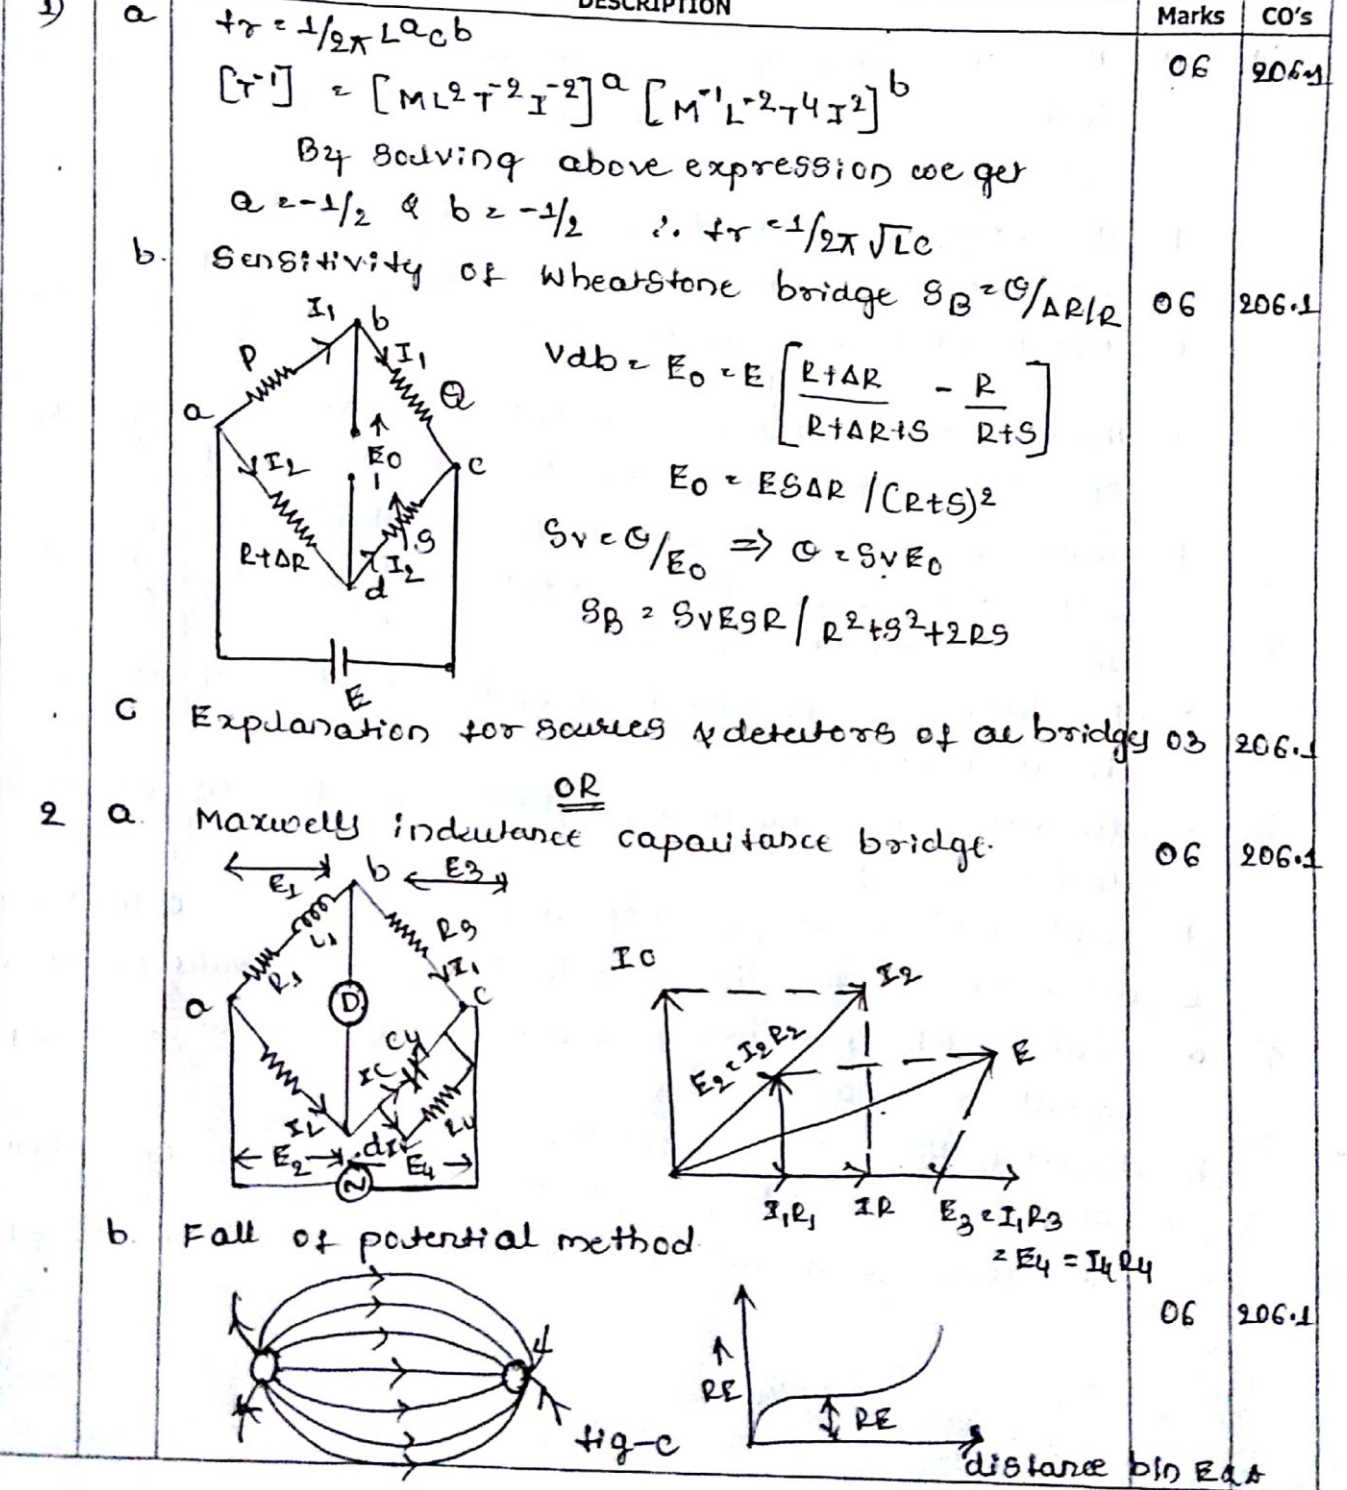 DESCRIPTION Marks CO's
1) a fr = 1/2π L^a C^b 06 206.1
[T⁻¹] = [ML²T⁻²I⁻²]^a [M⁻¹L⁻²T⁴I²]^b
By solving above expression we get
a = -1/2 & b = -1/2 ∴ fr = 1/2π √LC
b. Sensitivity of Wheatstone bridge S_B = θ/ΔR/R 06 206.1
I₁ b
P I₁ Q
a
I₂ E₀ c
R+ΔR S
I₂
d
E
Vdb = E₀ = E [R+ΔR / R+ΔR+S - R / R+S]
E₀ = ESΔR / (R+S)²
Sv = θ/E₀ ⇒ θ = SvE₀
S_B = SvESR / R²+S²+2RS
c Explanation for sources & detectors of ac bridges 03 206.1
OR
2 a. Maxwells inductance capacitance bridge. 06 206.1
E₁ b E₃
L₁ R₃
R₁ I₁
a D c
C₄
IC
I₂ R₄
E₂ d E₄
IC I₂
E₂ = I₂R₂ E
I₁R₁ IR E₃ = I₁R₃
= E₄ = I₄R₄
b. Fall of potential method
06 206.1
RE RE
fig-c
distance b/n E & A